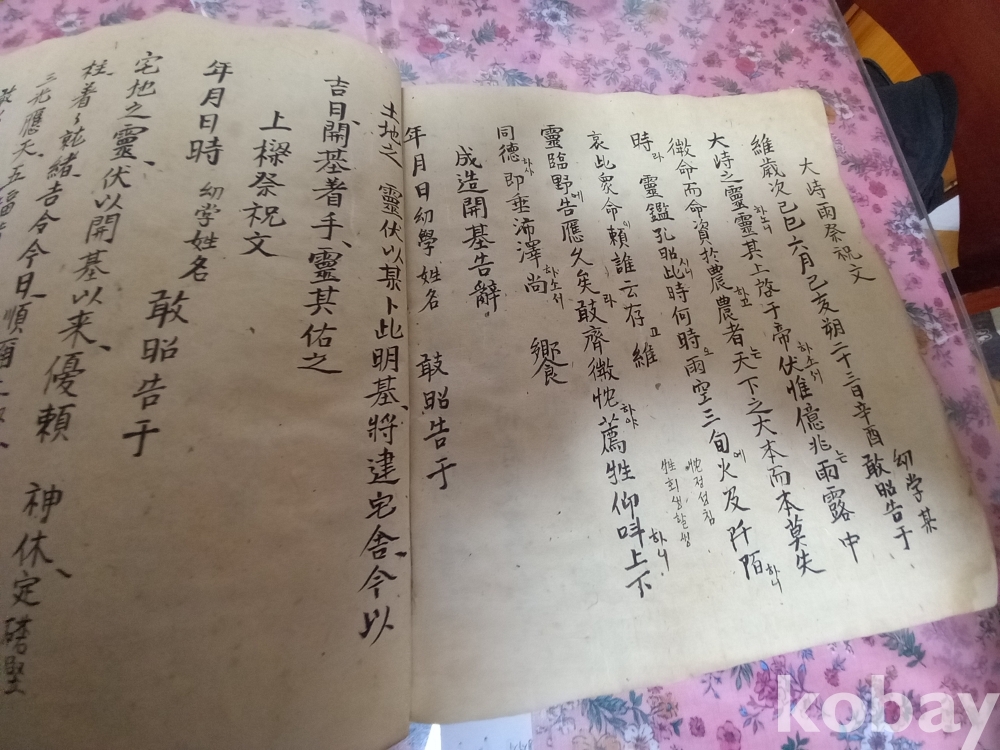 大峙雨祭祝文
維歲次己巳六月己亥朔二十三日辛酉 幼学某 敢昭告于
大峙之靈靈하소니其上啓于帝하소서伏惟億兆는雨露中
微命而命資於農하고農者는天下之大本而本莫失
時라靈鑑孔昭시니此時何時오雨空三旬에火及阡陌하니
哀此衆命이賴誰云存고維
靈臨野에告應久矣라敢齊微忱하야薦牲仰呌上下하니
忱정성침
牲희생할생
同德하사即垂沛澤하소서尚 饗
成造開基告辭
年月日幼學姓名 敢昭告于
土地之 靈伏以某卜此明基、將建宅舍、今以
吉日、開基着手、靈其佑之
上樑祭祝文
年月日時 幼学姓名 敢昭告于
宅地之靈、伏以開基以来、優賴 神休、定礎竪
柱、着々就緒、吉今今日、順
三光應天、五福